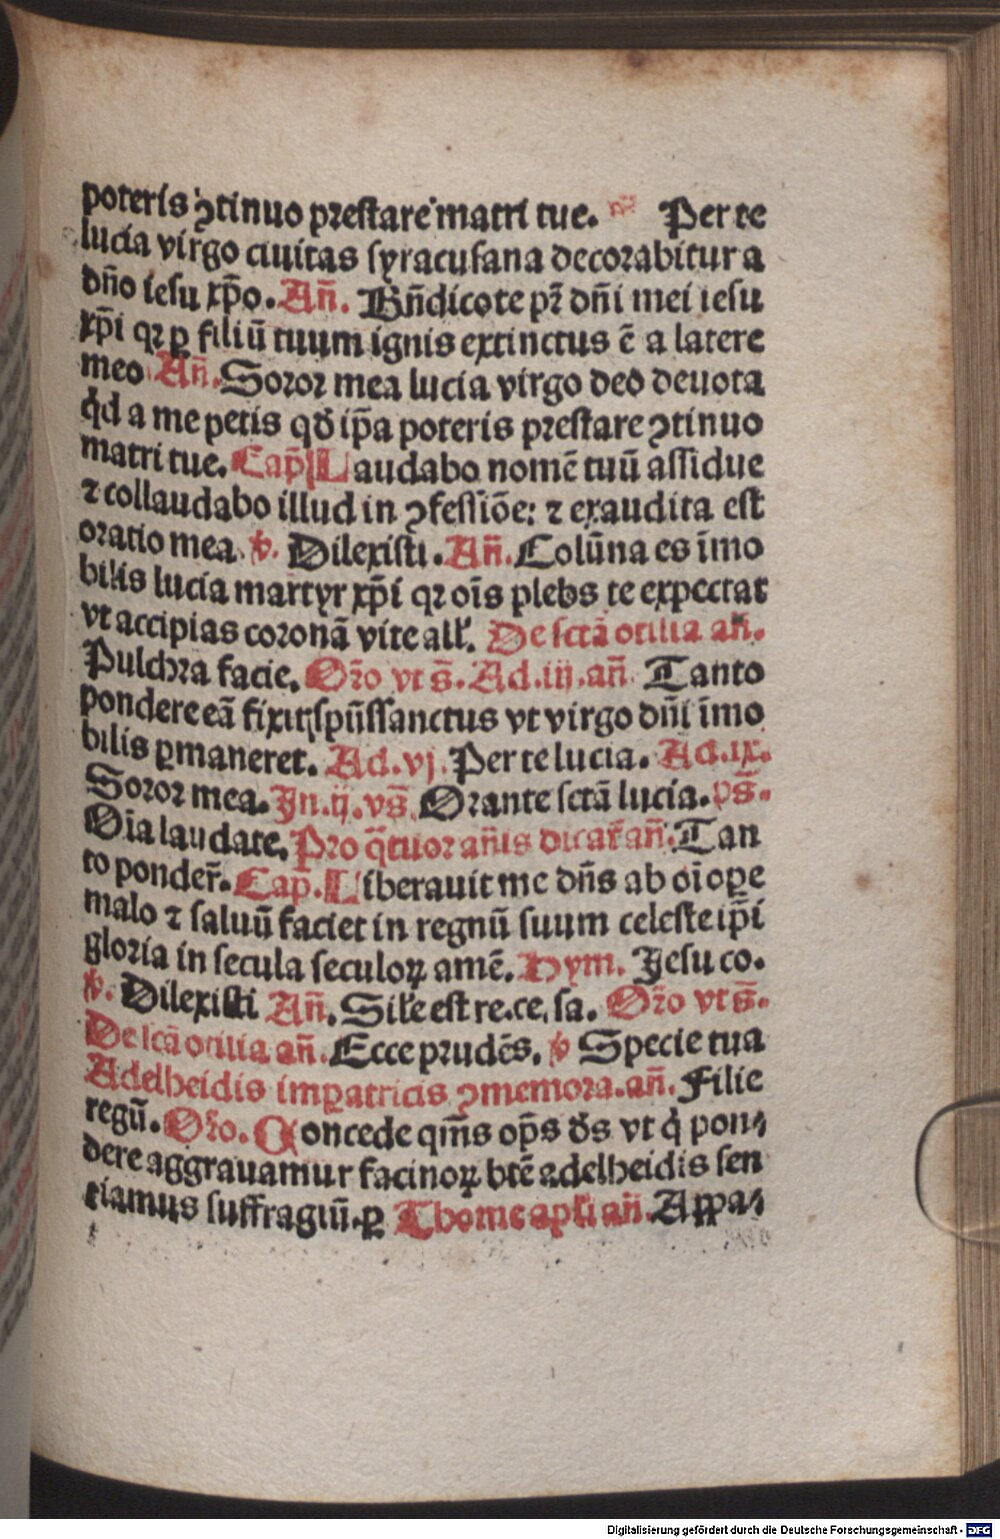 poteris ꝯtinuo prestare matri tue. Per te
lucia virgo ciuitas syracusana decorabitur a
dño iesu xp̄o. Añ. Bñdico te pr̄ dñi mei iesu
xp̄i qꝛ ꝑ filiū tuum ignis extinctus ē a latere
meo. Añ. Soror mea lucia virgo deo deuota
qͥd a me petis qð ip̄a poteris prestare ꝯtinuo
matri tue. Cap̄ Laudabo nomē tuū assidue
⁊ collaudabo illud in ꝯfessiōe: ⁊ exaudita est
oratio mea. ℣. Dilexisti. Añ. Colūna es īmo
bilis lucia martyr xp̄i qꝛ oīs plebs te expectat
vt accipias coronā vite all'. De sctā otilia añ.
Pulchra facie. Or̄o vt s̄. Ad .iij. añ. Tanto
pondere eā fixit spūssanctus vt virgo dñi īmo
bilis ꝑmaneret. Ad .vj. Per te lucia. Ad .ix.
Soror mea. In .ij. vs̄ Orante sctā lucia. ps̄.
Oīa laudate. Pro q̄tuor añis dicat̄ añ. Tan
to ponder̄. Cap. Liberauit me dñs ab oī oꝑe
malo ⁊ saluū faciet in regnū suum celeste ip̄i
gloria in secula seculoꝝ amē. Hym. Jesu co.
℣. Dilexisti Añ. Sil'e est re. ce. sa. Or̄o vt s̄.
De scā otilia añ. Ecce prudēs. ℣ Specie tua
Adelheidis imꝑatricis ꝯmemora. añ. Filie
regū. Or̄o. Concede qm̄s op̄s ds̄ vt qͥ pon⸗
dere aggrauamur facinoꝝ btē adelheidis sen
tiamus suffragiū. ꝑ Thome apl'i añ. Appa⸗
Digitalisierung gefördert durch die Deutsche Forschungsgemeinschaft - DFG